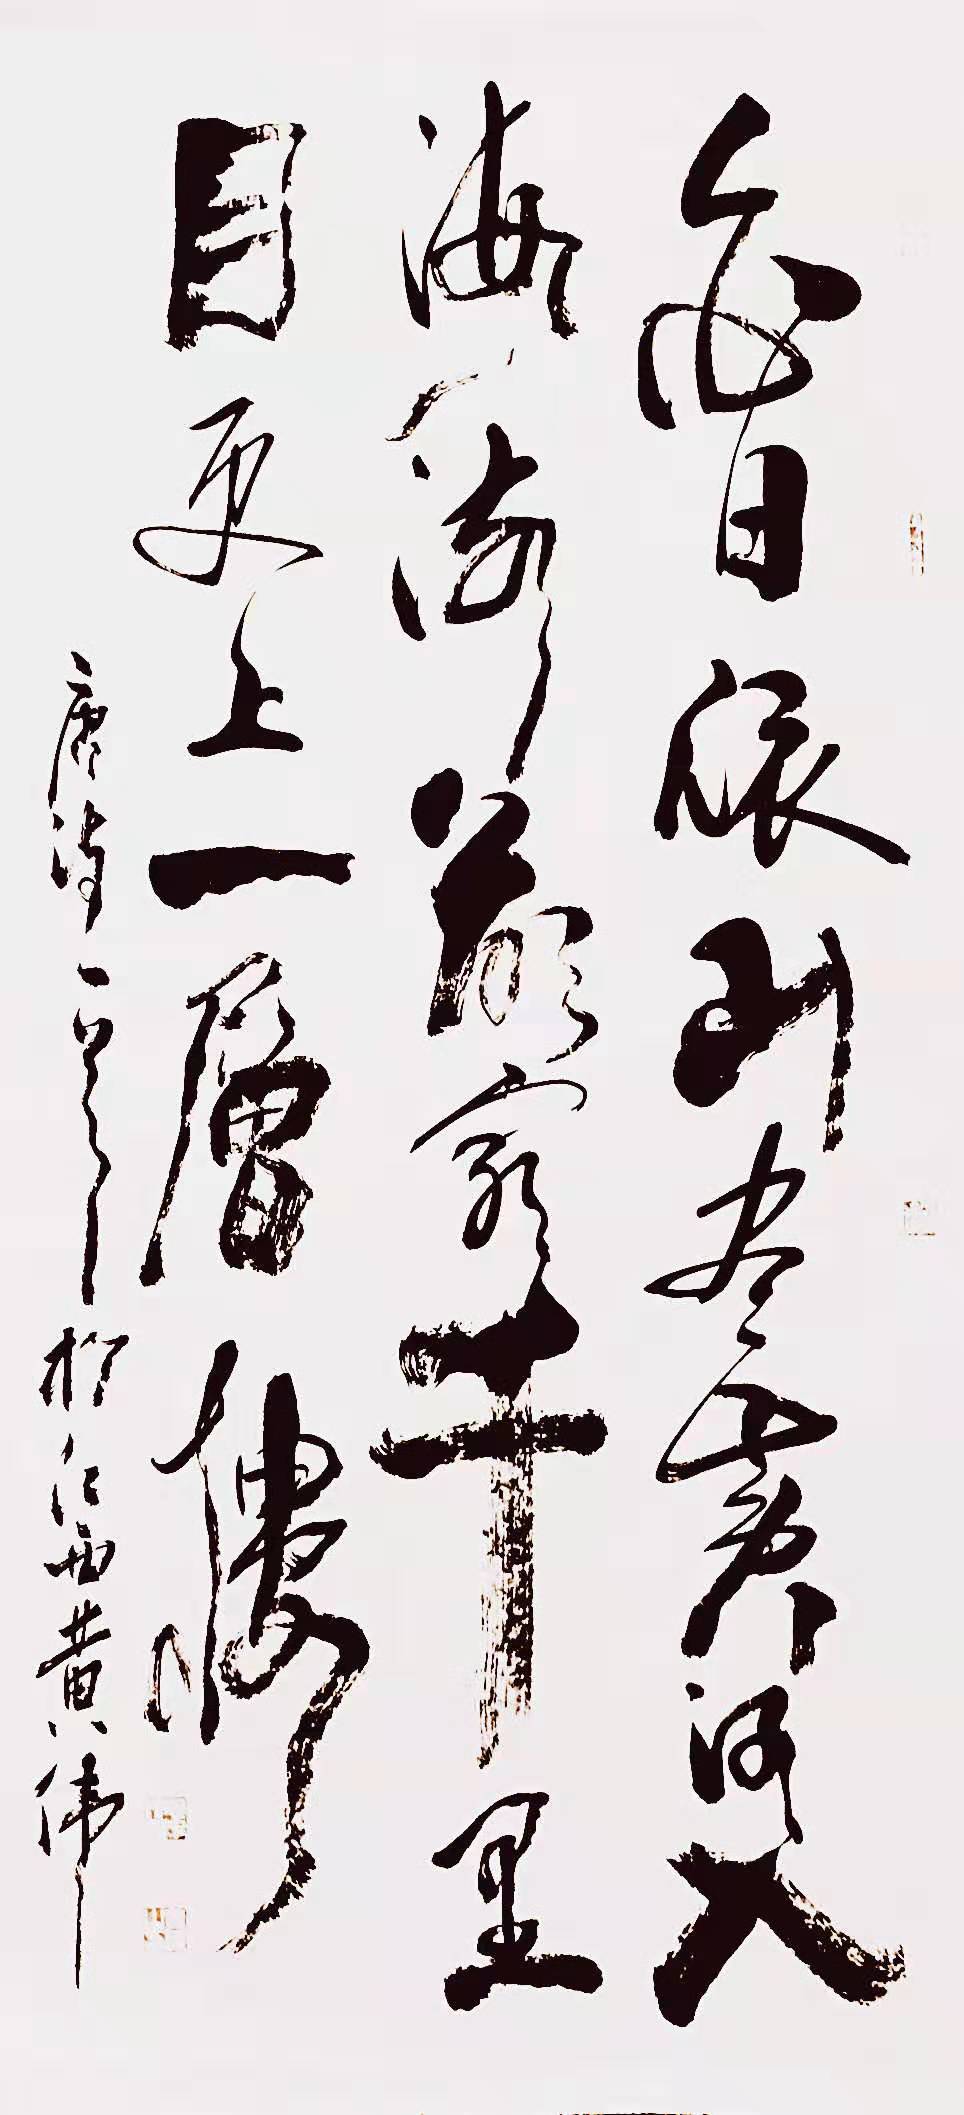 白日依山尽黄河入
海流欲穷千里
目更上一層樓
唐诗一首於江西黄伟